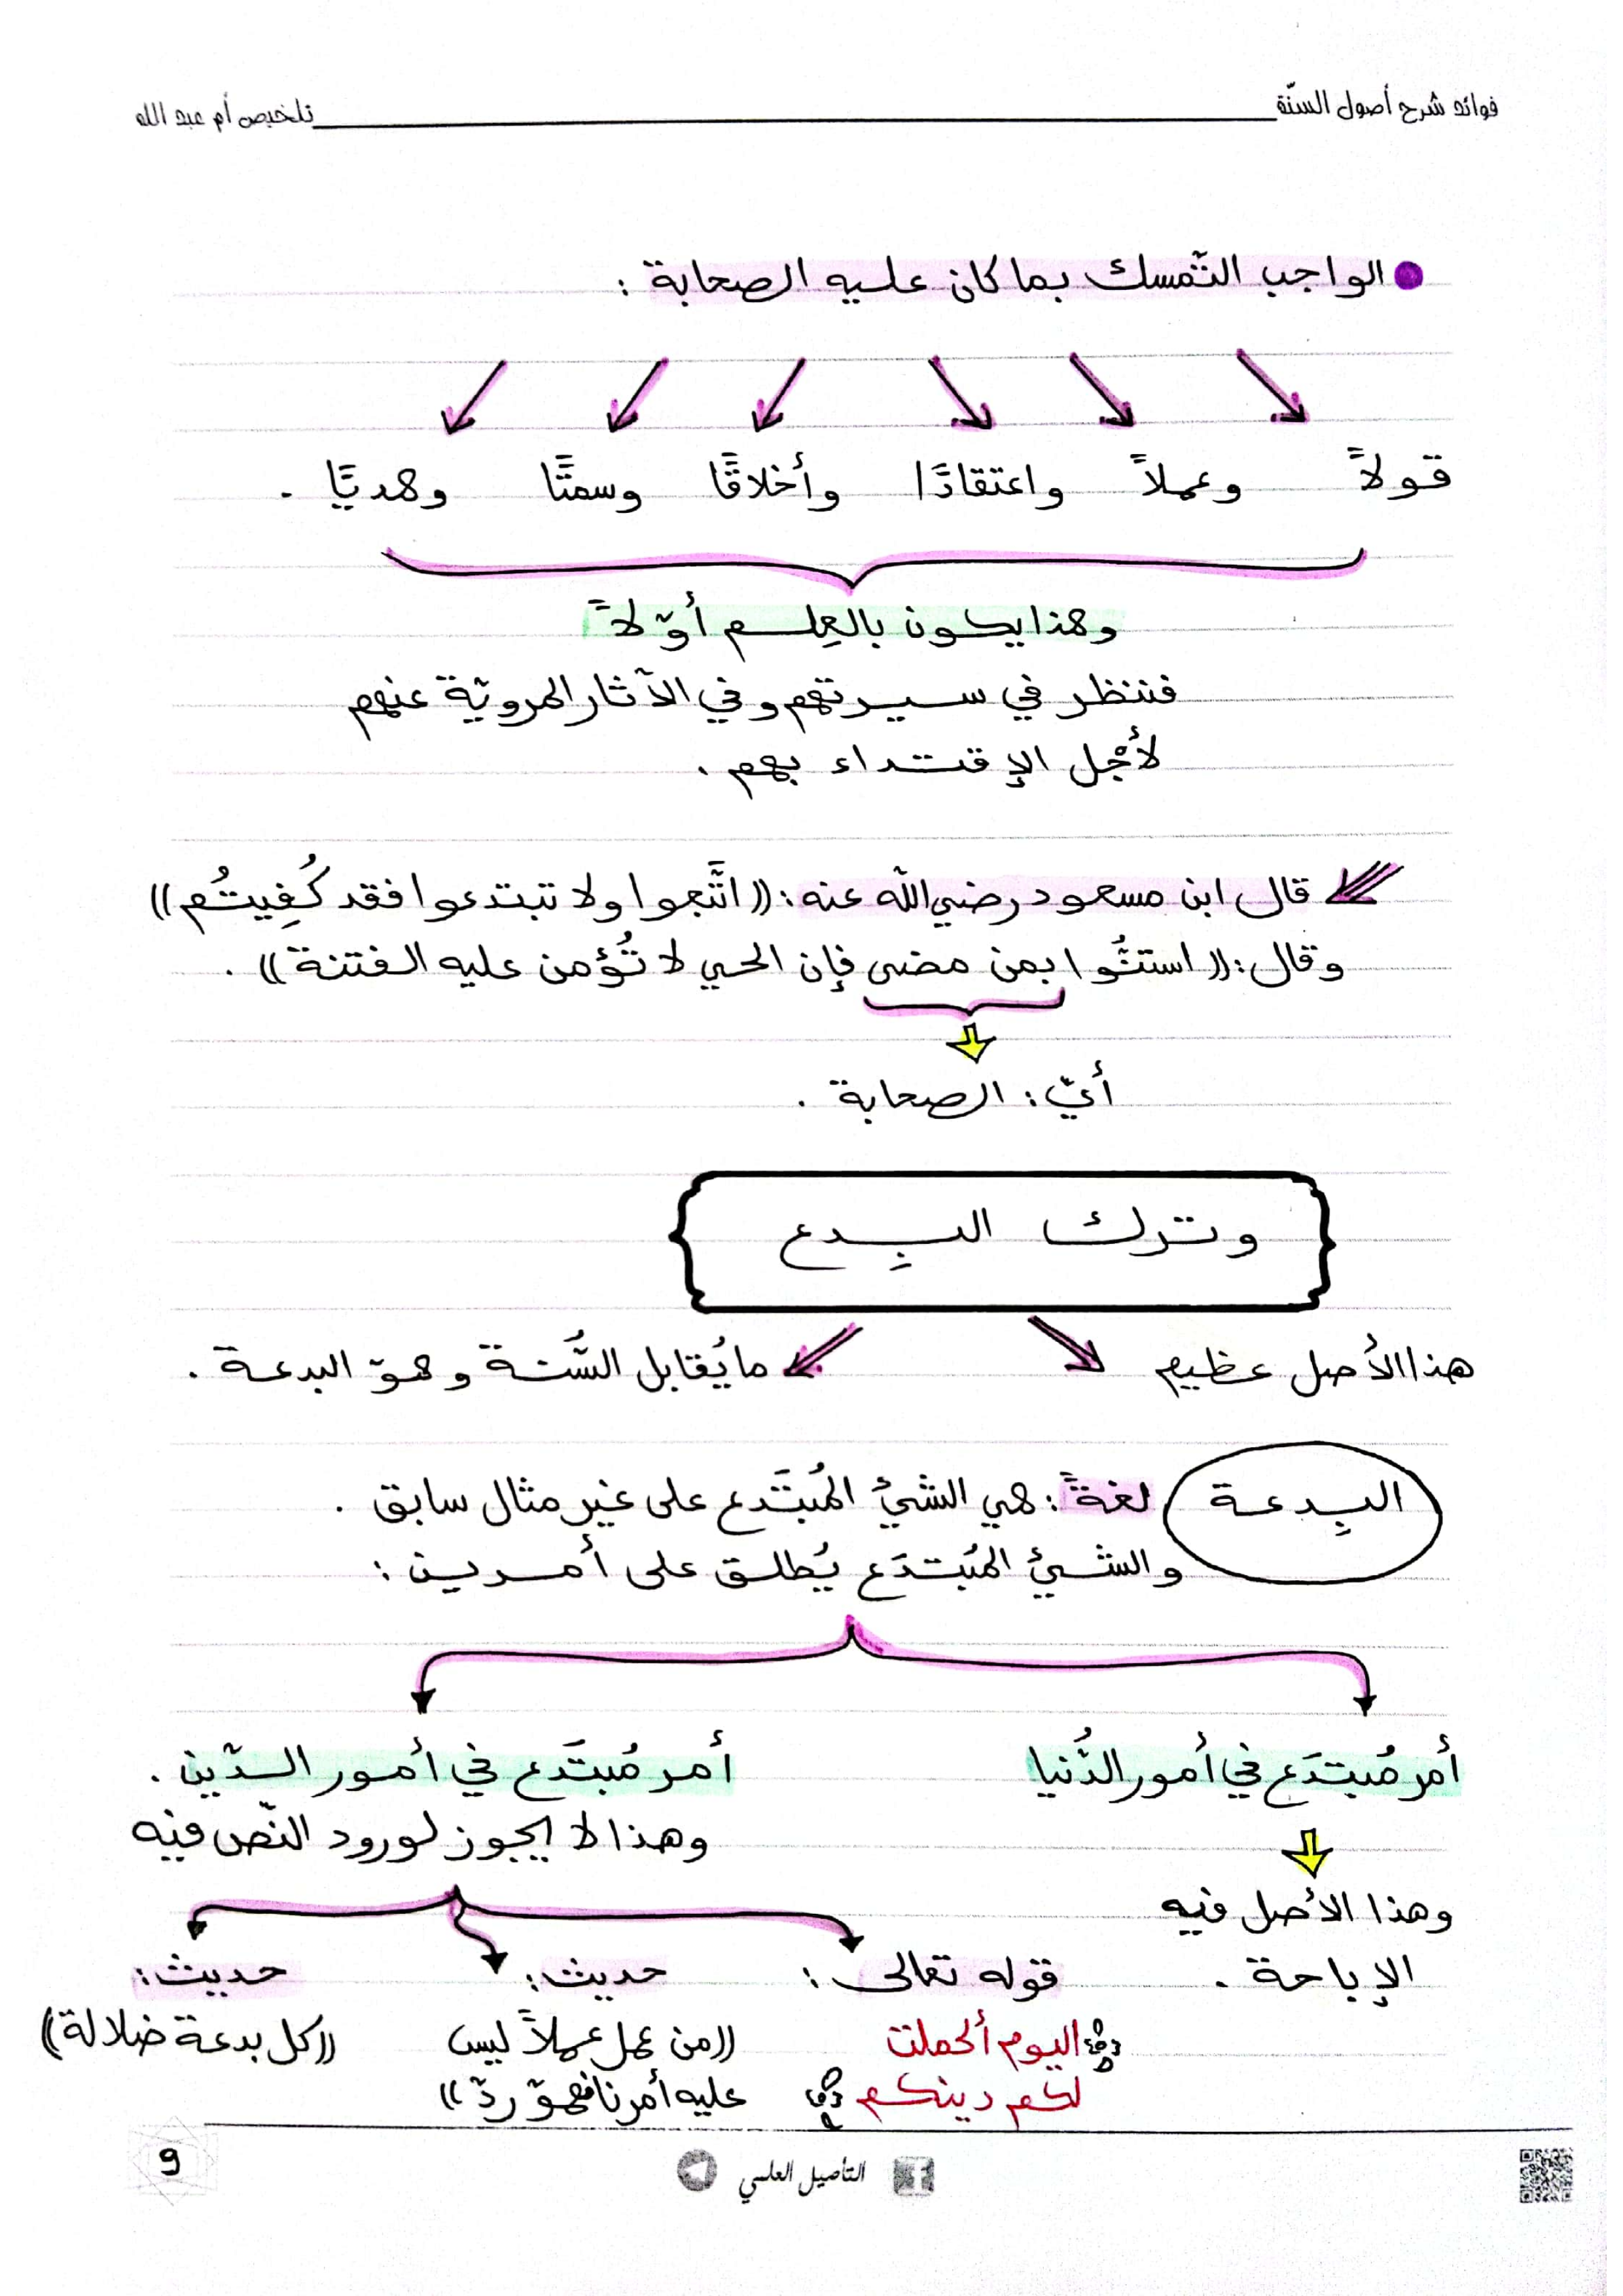 فوائد شرح أصول السنّة
تلخيص أم عبد الله
الواجب التّمسك بما كان عليه الصحابة :
قولاً وعملاً واعتقادًا وأخلاقًا وسمتًا وهديًا .
وهذا يكون بالعِلم أوّلاً
فننظر في سيرتهم وفي الآثار المرويّة عنهم
لأجْل الإقتداء بهم .
قال ابن مسعود رضي الله عنه : ((اتَّبعوا ولا تبتدعوا فقد كُفِيتُم))
وقال : ((استنُّوا بمن مضى فإن الحي لا تُؤمن عليه الفتنة)) .
أيّ : الصحابة .
وترك البِدع
هذا الأصل عظيم
ما يُقابل السُّنة وهوّ البدعة .
البِدعة لغةً : هي الشيئ المُبتَدع على غير مثال سابق .
والشيئ المُبتدَع يُطلق على أمرين :
أمر مُبتدَع في أمور الدُّنيا
أمر مُبتَدع في أمور الدّين .
وهذا لا يجوز لورود النّص فيه
وهذا الأصل فيه
الإباحة .
قوله تعالى :
اليوم أكملت
لكم دينكم
حديث :
((من عمل عملاً ليس
عليه أمرنا فهوّ ردّ))
حديث :
((كل بدعة ضلالة))
التأصيل العلمي
9